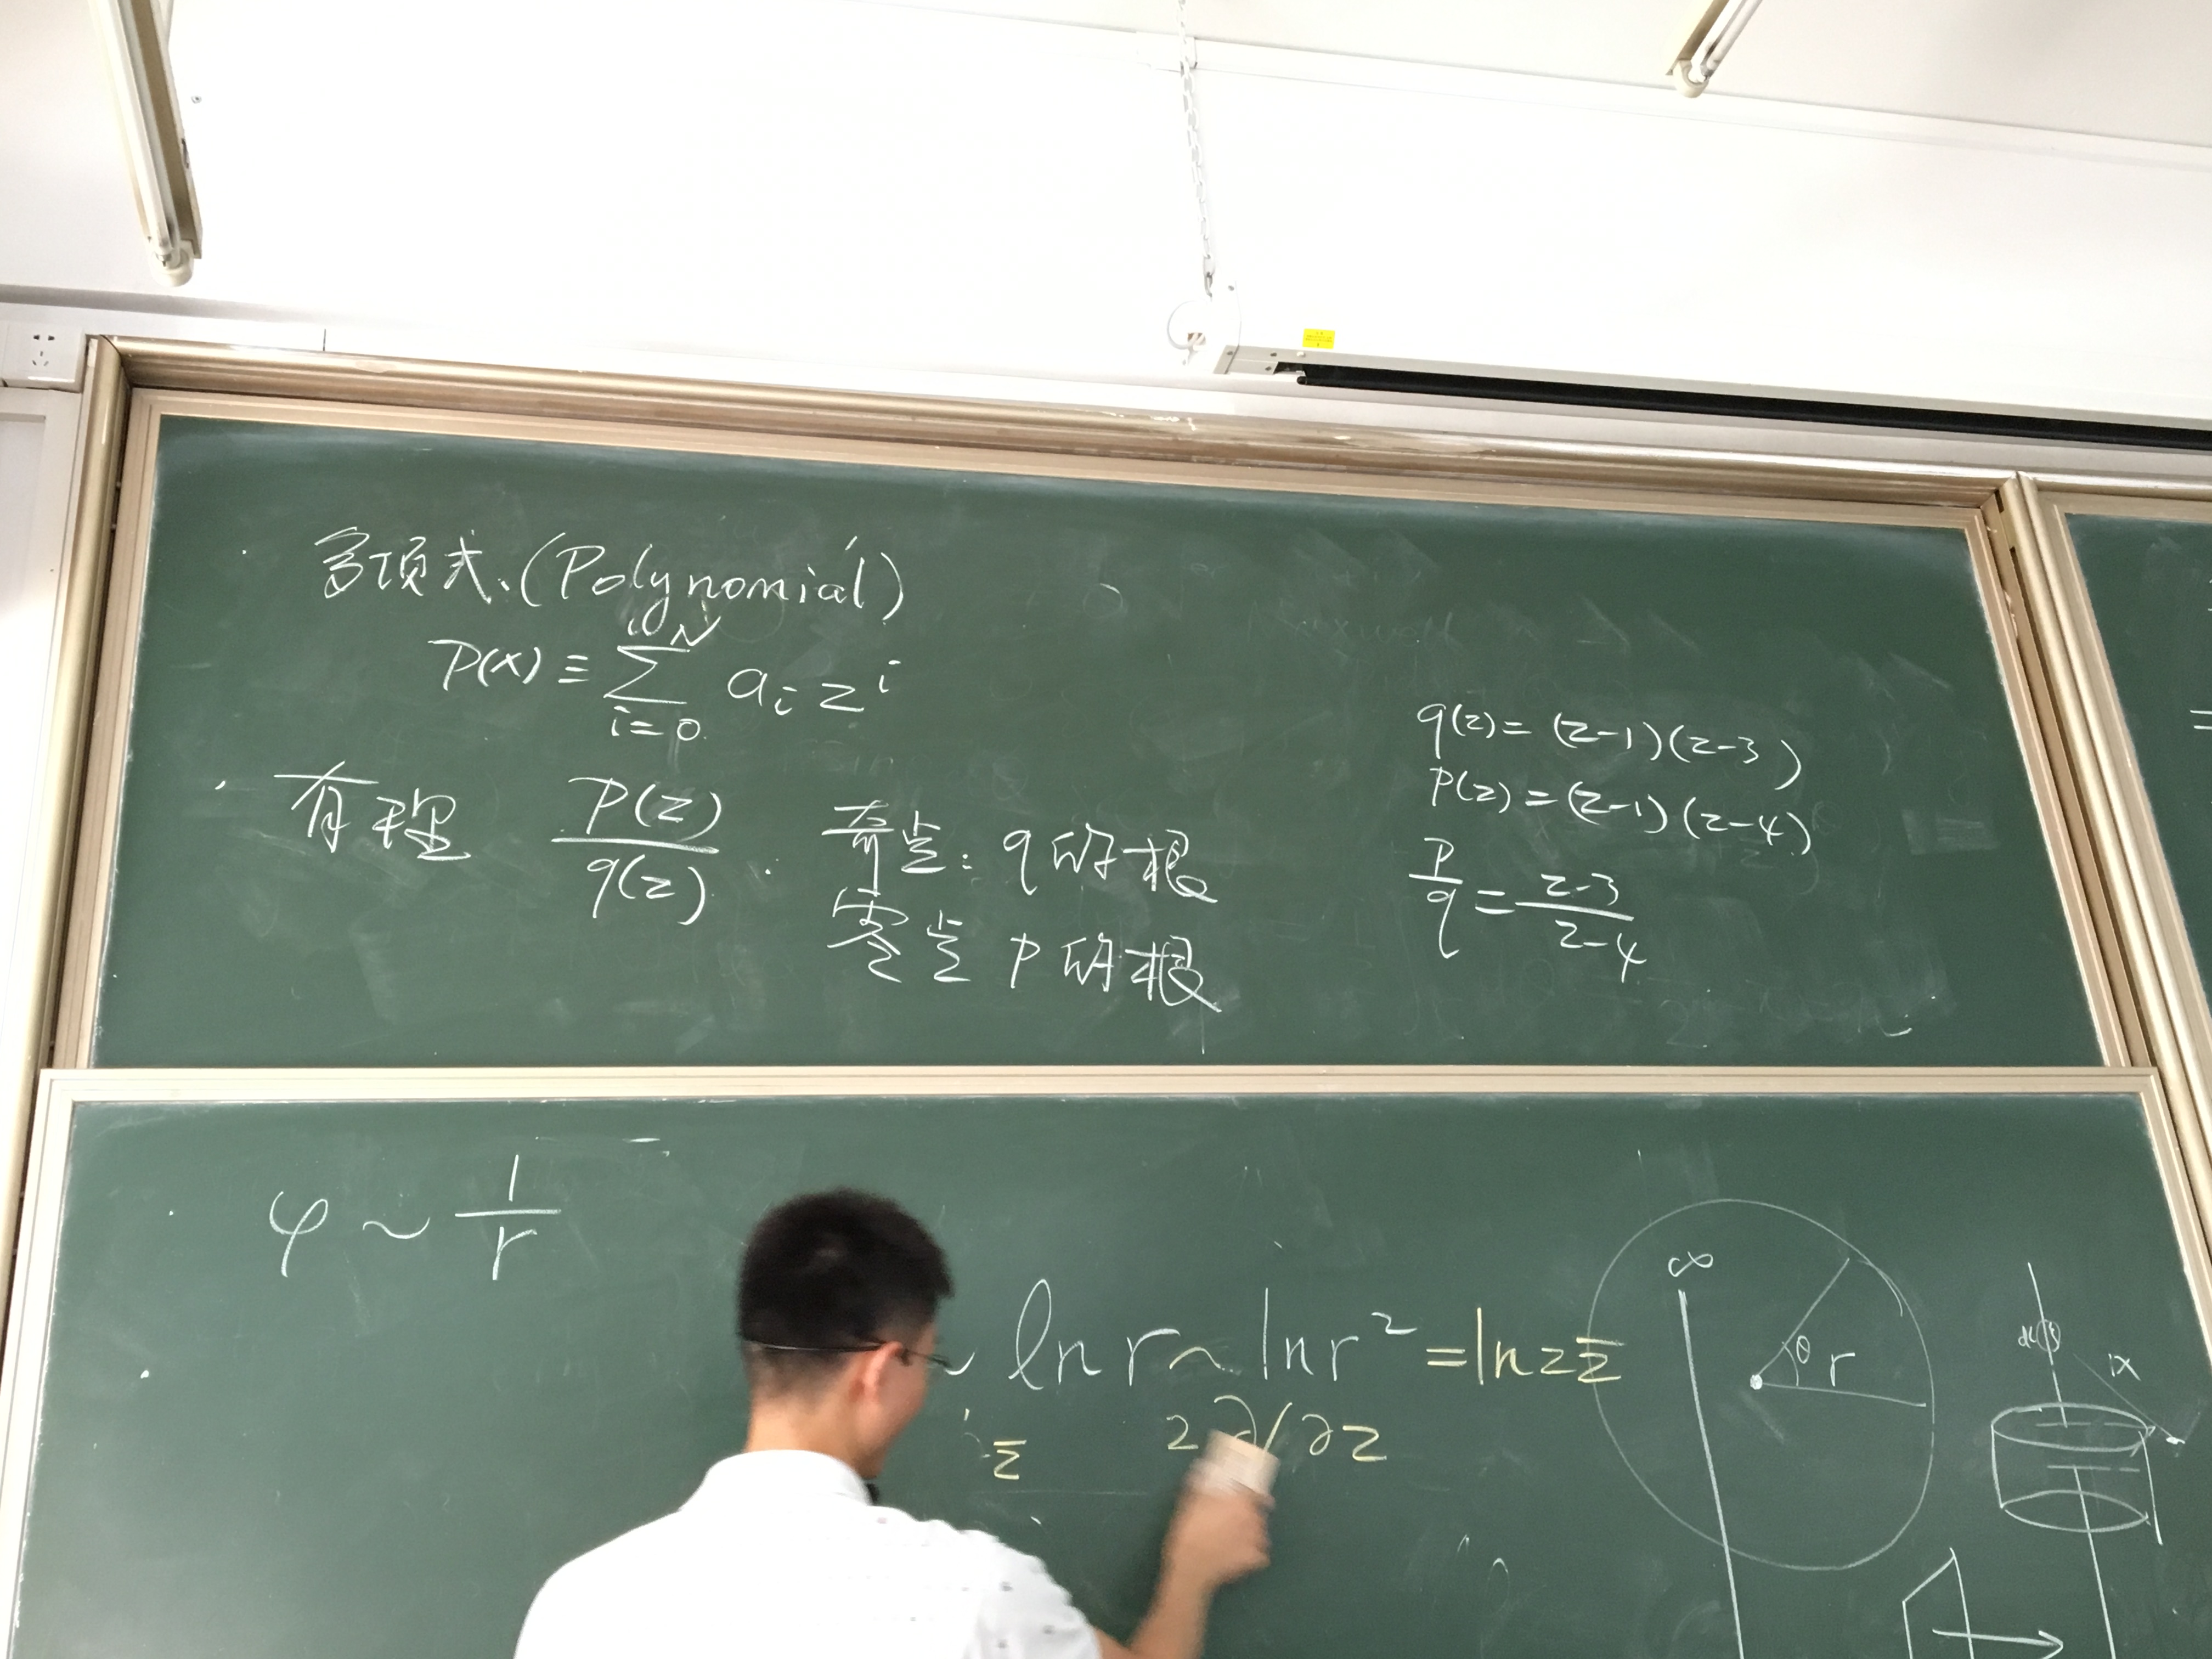 多项式.(Polynomial)
P(x) ≡ ∑_{i=0}^{N} a_i z^i
有理 P(z)/q(z). 奇点: q的根
零点 P的根
q(z)= (z-1)(z-3)
P(z)=(z-1)(z-4)
P/q = z-3/z-4
φ ~ 1/r
~ ln r ~ ln r² = ln z z̄
z̄ 2∂/∂z
∞
θ r